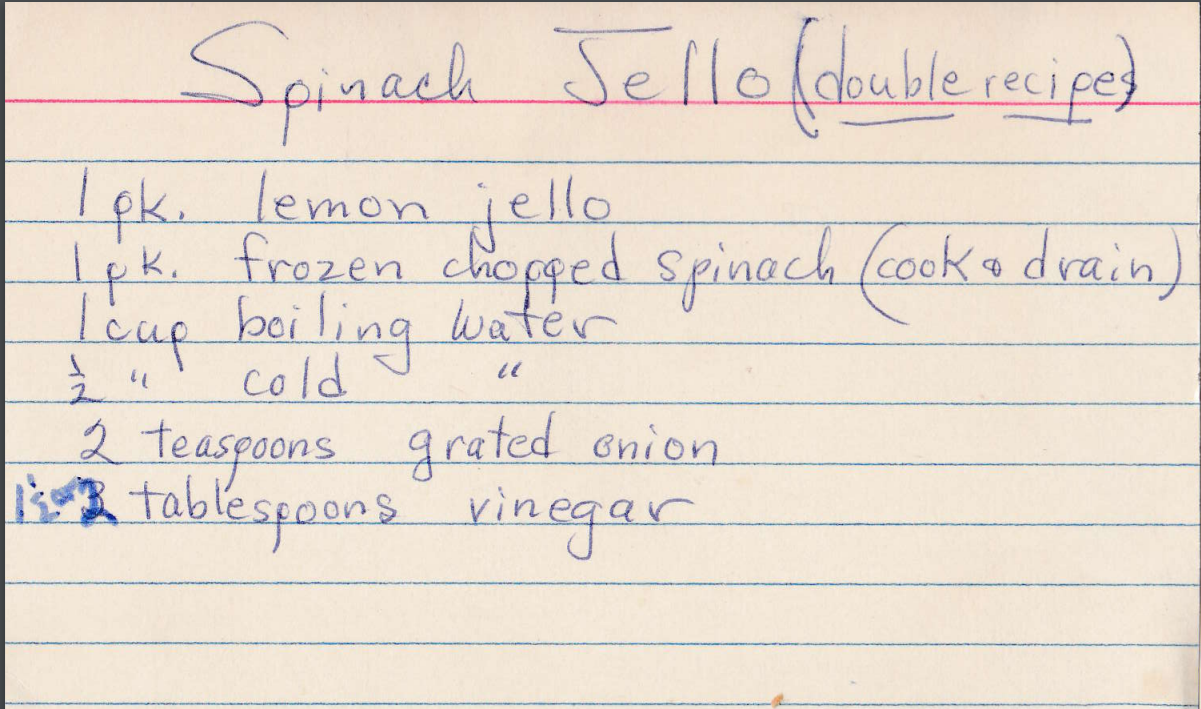 Spinach Jello (double recipe)
1 pk. lemon jello
1 pk. frozen chopped spinach (cook & drain)
1 cup boiling water
½ " cold "
2 teaspoons grated onion
tablespoons vinegar